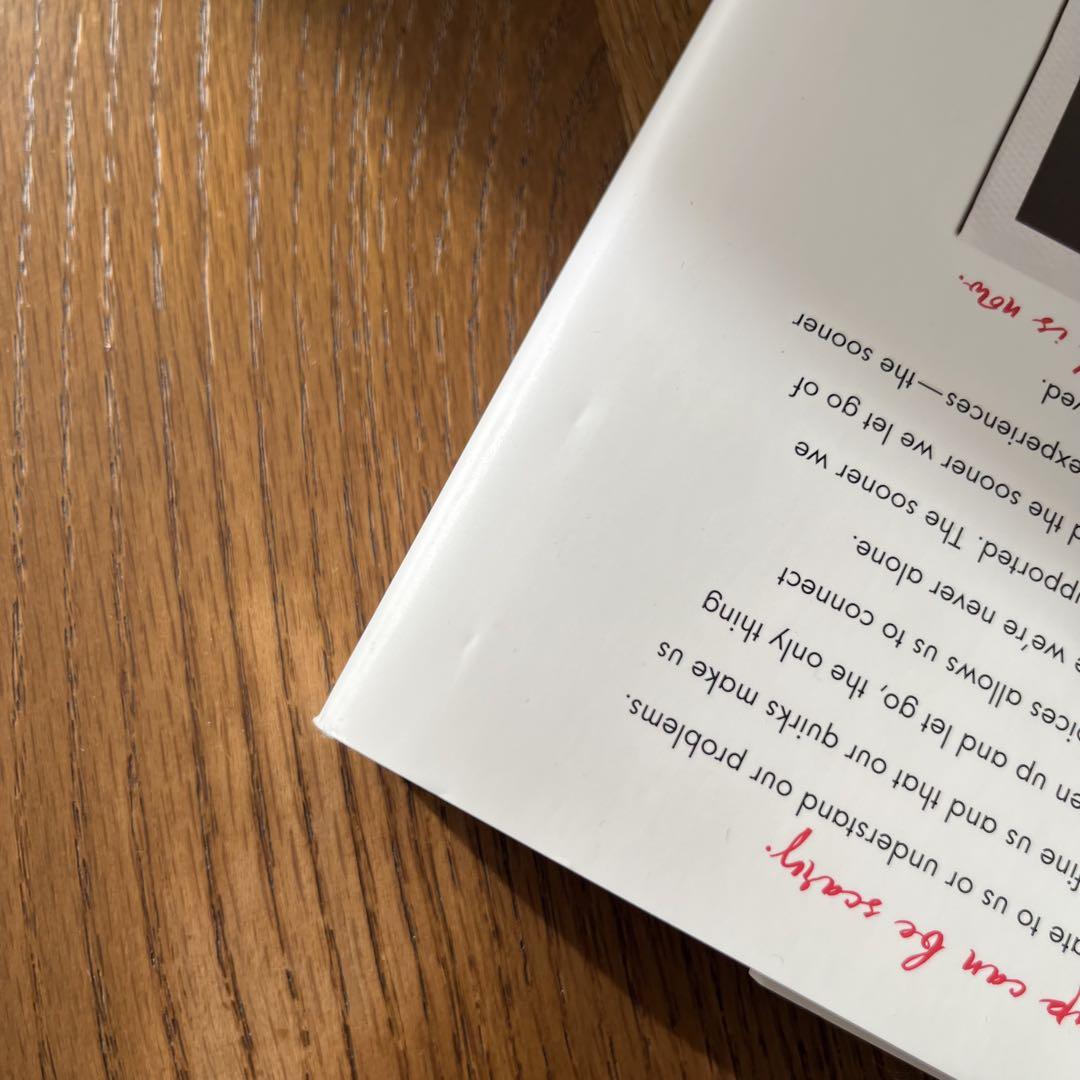 up can be scary.
ate to us or understand our problems.
fine us and that our quirks make us
en up and let go, the only thing
oices allows us to connect
e we're never alone.
upported. The sooner we
d the sooner we let go of
experiences—the sooner
ved.
is now.